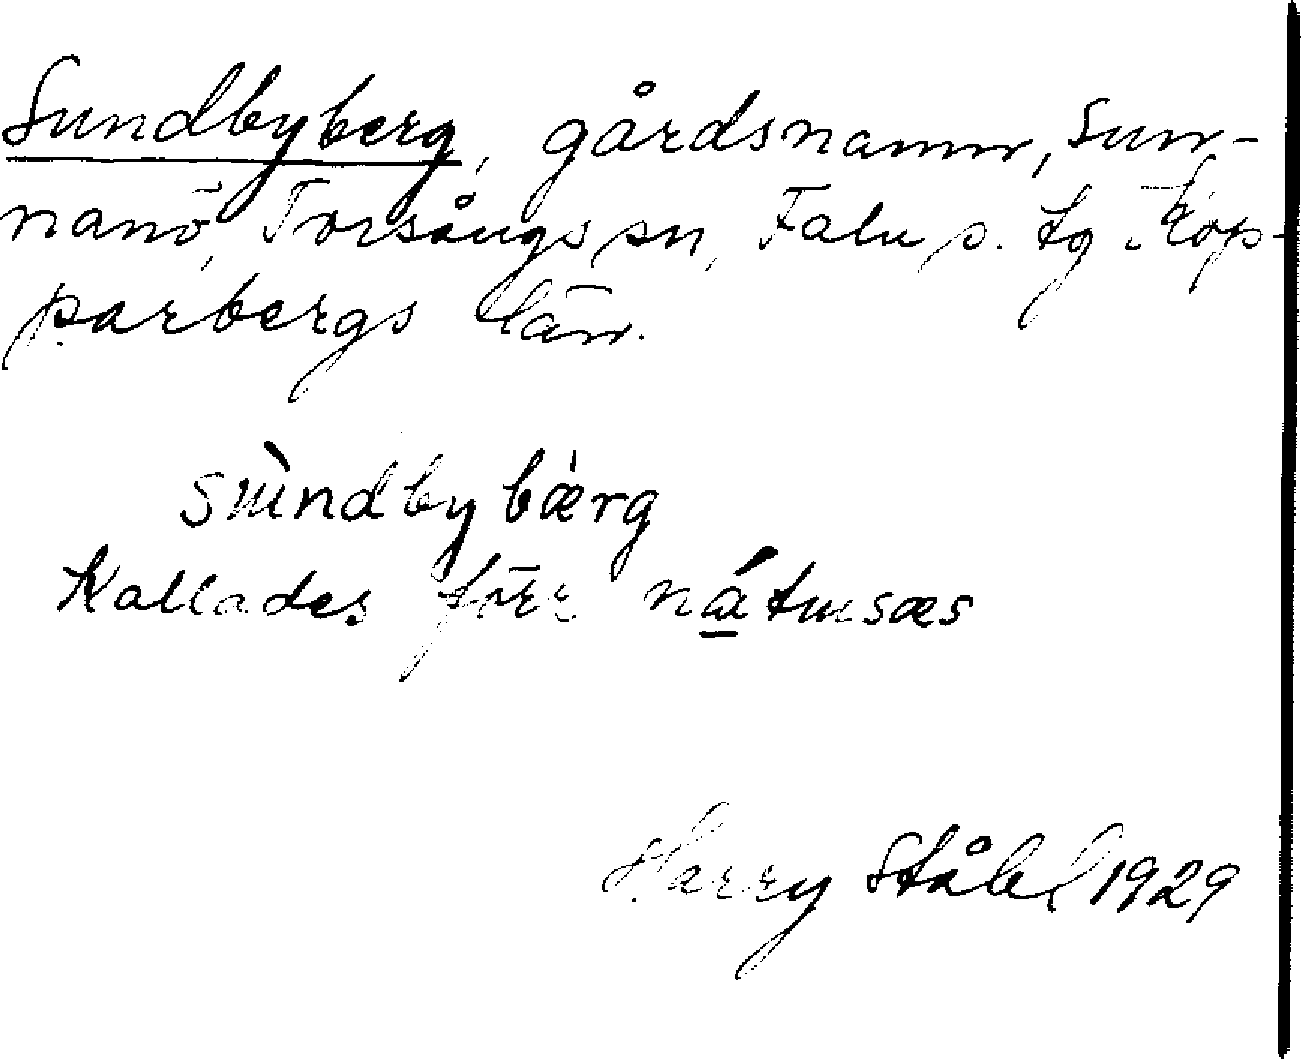 Sundbyberg, gårdsnamn, Sun-
nanö, Torsångs sn, Falu s. tg Kop-
parbergs län.
sɯ̀ndbybǽrg
Kallades förr nǽtɯsæs
Harry Ståhl 1929